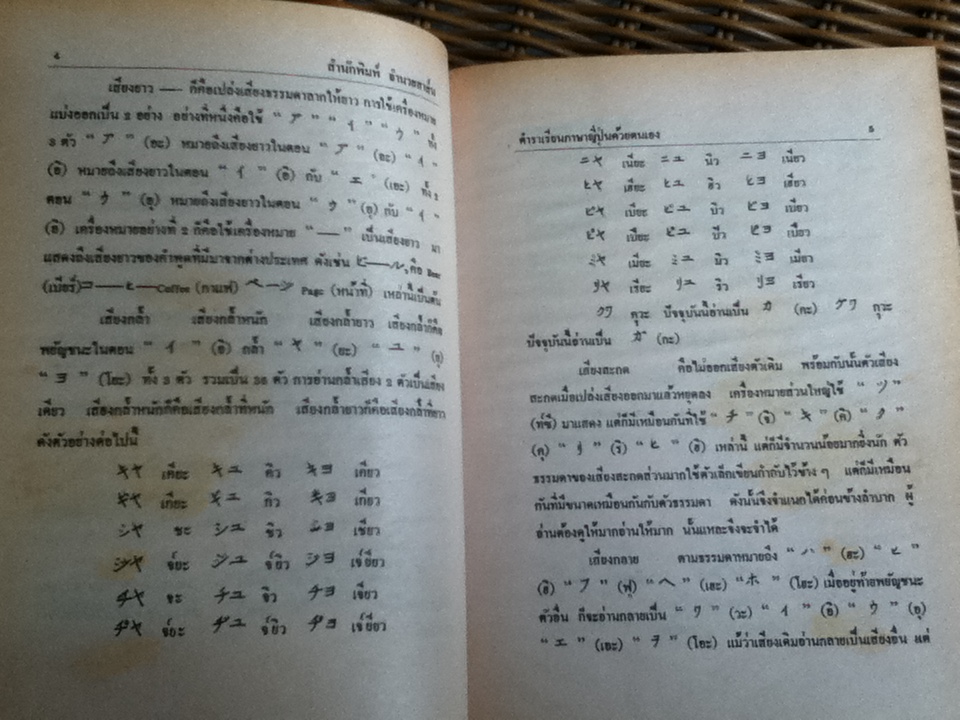 4
สำนักพิมพ์ อำนวยสาส์น
เสียงยาว — ก็คือเปล่งเสียงธรรมดาลากให้ยาว การใช้เครื่องหมาย
แบ่งออกเป็น 2 อย่าง อย่างที่หนึ่งคือใช้ “ ア ” “ イ ” “ ウ ” ทั้ง
3 ตัว “ ア ” (อะ) หมายถึงเสียงยาวในตอน “ ア ” (อะ) “ イ ”
(อิ) หมายถึงเสียงยาวในตอน “ イ ” (อิ) กับ “ エ ” (เอะ) ทั้ง 2
ตอน “ ウ ” (อุ) หมายถึงเสียงยาวในตอน “ ウ ” (อุ) กับ “ イ ”
(อิ) เครื่องหมายอย่างที่ 2 ก็คือใช้เครื่องหมาย “ — ” เป็นเสียงยาว มา
แสดงถึงเสียงยาวของคำพูดที่มีมาจากต่างประเทศ ดังเช่น ビール, คือ Beer
(เบียร์) コーヒー Coffee (กาแฟ) ページ Page (หน้าที่) เหล่านี้เป็นต้น
เสียงกล้ำ เสียงกล้ำหนัก เสียงกล้ำยาว เสียงกล้ำก็คือ
พยัญชนะในตอน “ イ ” (อิ) กล้ำ “ ヤ ” (ยะ) “ ユ ” (ยุ)
“ ヨ ” (โยะ) ทั้ง 3 ตัว รวมเป็น 36 ตัว การอ่านกล้ำเสียง 2 ตัวเป็นเสียง
เดียว เสียงกล้ำหนักก็คือเสียงกล้ำที่หนัก เสียงกล้ำยาวก็คือเสียงกล้ำที่ยาว
ดังตัวอย่างต่อไปนี้
キヤ เคียะ キユ คิว キヨ เคียว
ギヤ เกียะ ギユ กิว ギヨ เกียว
シヤ ชะ シユ ชิว シヨ เชียว
ジヤ จ์ยะ ジユ จ์ยิว ジヨ เจ์ยียว
チヤ จะ チユ จิว チヨ เจียว
ヂヤ จ์ยะ ヂユ จ์ยิว ヂヨ เจ์ยียว
ตำราเรียนภาษาญี่ปุ่นด้วยตนเอง 5
ニヤ เนียะ ニユ นิว ニヨ เนียว
ヒヤ เฮียะ ヒユ ฮิว ヒヨ เฮียว
ビヤ เบียะ ビユ บิว ビヨ เบียว
ピヤ เปียะ ピユ ปิว ピヨ เปียว
ミヤ เมียะ ミユ มิว ミヨ เมียว
リヤ เรียะ リユ ริว リヨ เรียว
クワ คุวะ ปัจจุบันนี้อ่านเป็น カ (กะ) グワ กุวะ
ปัจจุบันนี้อ่านเป็น ガ (กะ)
เสียงสะกด คือไม่ออกเสียงตัวเดิม พร้อมกับนั้นตัวเสียง
สะกดเมื่อเปล่งเสียงออกมาแล้วหยุดลง เครื่องหมายส่วนใหญ่ใช้ “ ツ ”
(ท์ซึ) มาแสดง แต่ก็มีเหมือนกันที่ใช้ “ チ ” (จิ) “ キ ” (คิ) “ ク ”
(คุ) “ リ ” (ริ) “ ヒ ” (ฮิ) เหล่านี้ แต่ก็มีจำนวนน้อยมากยิ่งนัก ตัว
ธรรมดาของเสียงสะกดส่วนมากใช้ตัวเล็กเขียนกำกับไว้ข้าง ๆ แต่ก็มีเหมือน
กันที่มีขนาดเหมือนกันกับตัวธรรมดา ดังนั้นจึงจำแนกได้ค่อนข้างลำบาก ผู้
อ่านต้องดูให้มากอ่านให้มาก นั้นแหละจึงจะจำได้
เสียงกลาย ตามธรรมดาหมายถึง “ ハ ” (ฮะ) “ ヒ ”
(ฮิ) “ フ ” (ฟุ) “ ヘ ” (เฮะ) “ ホ ” (โฮะ) เมื่ออยู่ท้ายพยัญชนะ
ตัวอื่น ก็จะอ่านกลายเป็น “ ワ ” (วะ) “ イ ” (อิ) “ ウ ” (อุ)
“ エ ” (เอะ) “ ヲ ” (โอะ) แม้ว่าเสียงเดิมอ่านกลายเป็นเสียงอื่น แต่